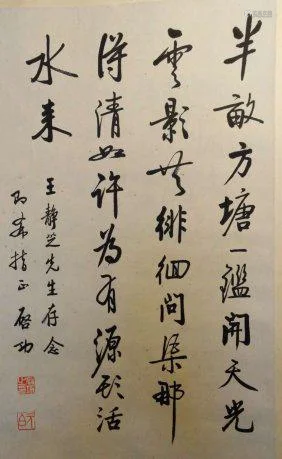 半畝方塘一鑑開天光
雲影共徘徊問渠那
得清如許為有源頭活
水来
王靜芝先生存念
即希指正 啓功